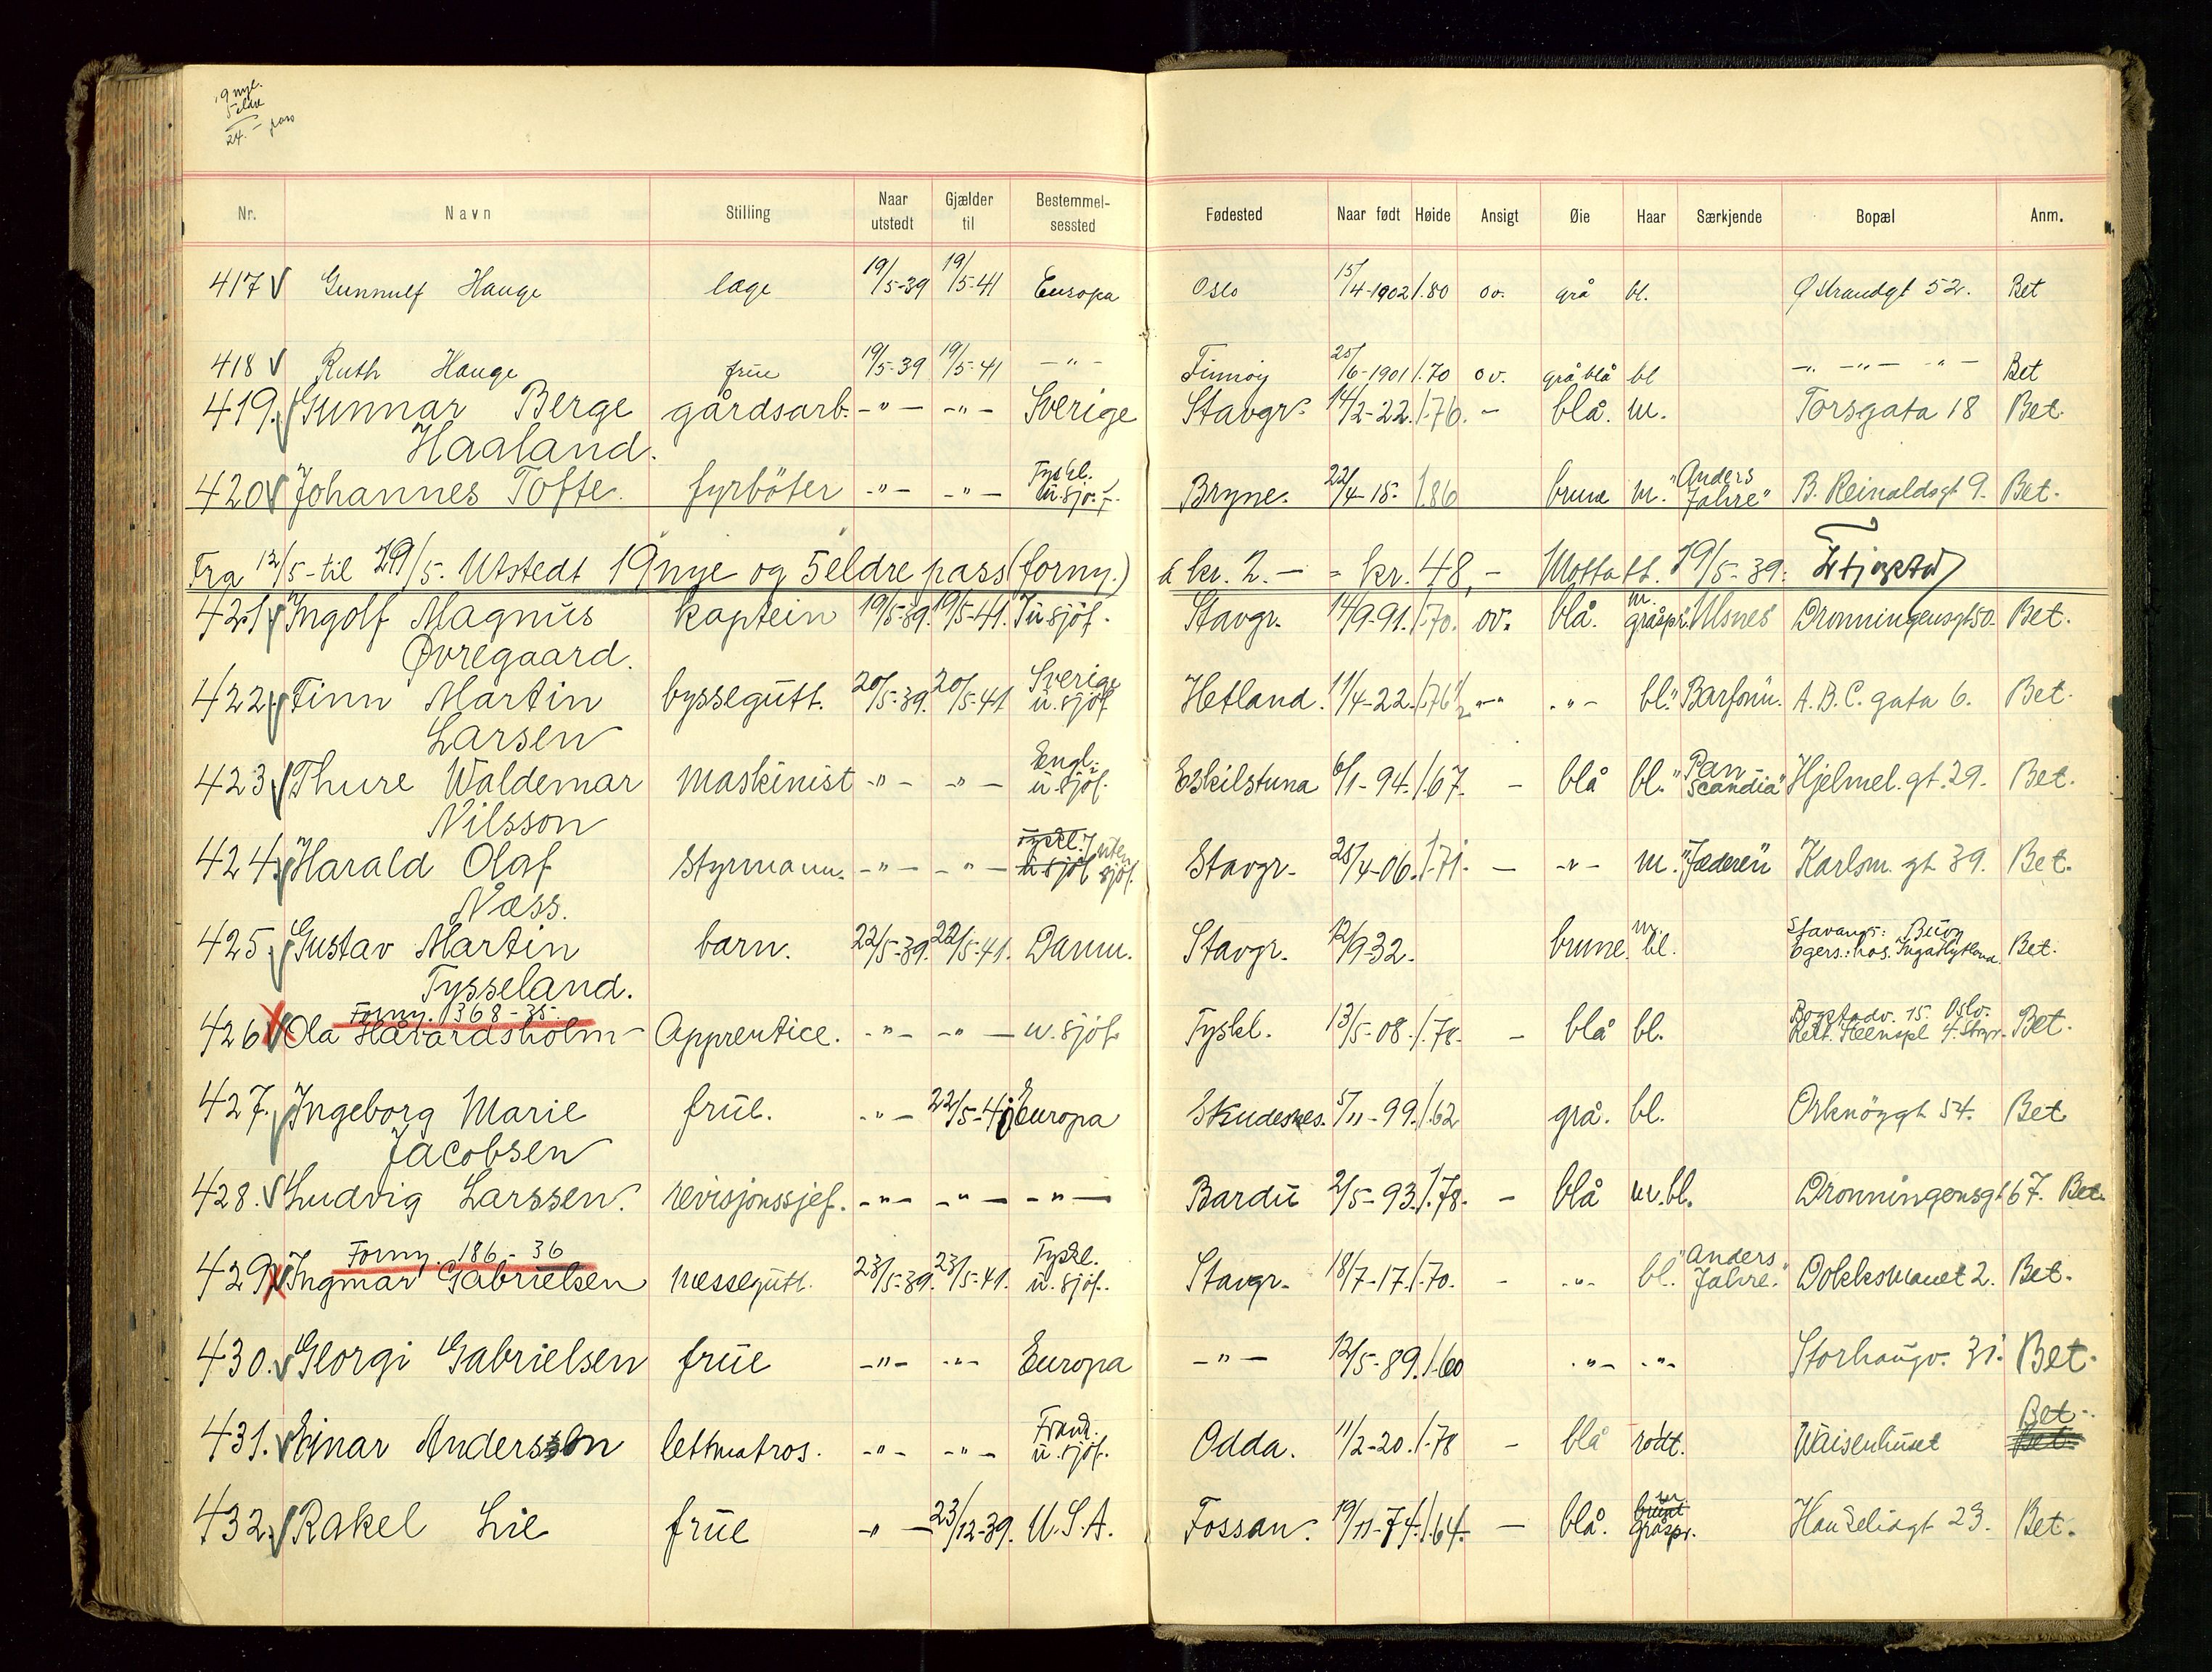 19 nye.
5 eldre
24.- pass
Nr. Navn Stilling Naar utstedt Gjælder til Bestemmelsessted Fødested Naar født Høide Ansigt Øie Haar Særkjende Bopæl Anm.
417 V Gunnulf Hauge læge 19/5-39 19/5-41 Europa Oslo 15/4-1902 1.80 ov. grå bl. Ø Strandgt 52. Bet
418 V Ruth Hauge frue 19/5-39 19/5-41 -"- Finnøy 25/6-1901 1.70 ov. grå blå bl -"- -"- -"- Bet
419. V Gunnar Berge gårdsarb. -"- -"- Sverige Stavgr. 14/2-22. 1.76. - blå. m. Torsgata 18 Bet.
Haaland.
420 V Johannes Tofte. fyrböter -"- -"- Tyskl. u. sjøf. Bryne. 22/4-15. 1.86 brune m. "Anders Jahre" B. Reinaldsgt 9. Bet.
Fra 12/5-til 19/5. Utstedt 19 nye og 5 eldre pass (forny.) à kr. 2.- = kr. 48,- Mottatt. 19/5-39.
421 V Ingolf Magnus kaptein 19/5-39. 19/5-41. u sjøf. Stavgr. 14/9-91. 1.70. ov. blå. m. gråspr. "Ulsnes" Dronningensgt 50. Bet.
Øvregaard.
422 V Finn Martin byssegutt. 20/5-39. 20/5-41 Sverige u. sjøf Hetland. 11/4-22. 1.76 1/2 -"- -"- bl. "Barfonn. A.B.C. gata 6. Bet.
Larsen
423 V Thure Waldemar Maskinist -"- -"- Engl. u. sjøf. Eskilstuna 6/1-94. 1.67. - blå bl. "Pan-Scandia" Hjelmel. gt. 29. Bet.
Nilsson
424. V Harald Olaf Styrmann. -"- -"- Tyskl. u sjøf uten sjøf. Stavgr. 25/4-06. 1.71. - -"- m. "Jæderen Karlsm. gt 39. Bet.
Næss.
425. V Gustav Martin barn. 22/5-39. 22/5-41. Danm. Stavgr. 12/9-32. brune. m. bl. Stavangr: Buøy
Egers.: hos. Inga Hytland. Bet.
Tysseland.
Forny. 1368-35.
426 V Ola Håvardsholm Apprentice. -"- -"- u. sjøf. Tyskl. 13/5-08. 1.78. - blå bl. Bogstadv. 15. Oslo. Bet.
427. V Ingeborg Marie frue. -"- 22/5-41 Europa Skudesnes. 5/11-99. 1.62 grå. bl. Orknöygt 54. Bet
Jacobsen
428. V Ludvig Larssen. revisjonssjef. -"- -"- -"- Bardu 2/5-93. 1.78. - blå m. bl. Dronningensgt 67. Bet.
Forny. 186-36
429 V Ingmar Gabrielsen messegutt. 23/5-39. 23/5-41. Tyskl. u. sjøf. Stavgr. 18/7-17. 1.70. - -"- bl. "Anders Jahre." Dokksmauet 2. Bet.
430. V Georgi Gabrielsen frue -"- -"- Europa -"- 12/5-89. 1.60 -"- -"- Storhaugv. 31. Bet.
431. V Einar Anderson lettmatros. -"- -"- Frankr. u. sjøf. Odda. 11/2-20. 1.78 - blå rødt. Waisenhuset Bet. Bet.
432. V Rakel Lie frue -"- 23/12-39. U.S.A. Fossan. 19/11-74. 1.64. - blå. gråspr. 23. Bet.